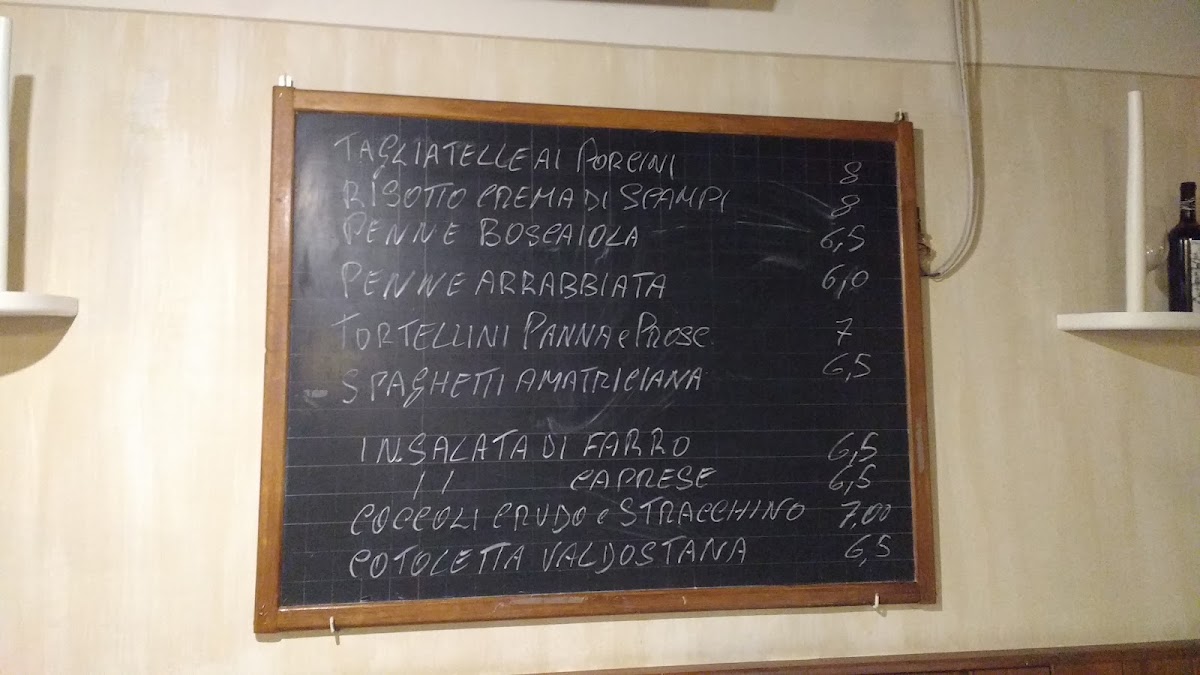 TAGLIATELLE AI PORCINI 8
RISOTTO CREMA DI SCAMPI 8
PENNE BOSCAIOLA 6,5
PENNE ARRABBIATA 6,0
TORTELLINI PANNA e PROSC. 7
SPAGHETTI AMATRICIANA 6,5
INSALATA DI FARRO 6,5
11 CAPRESE 6,5
COCCOLI CRUDO e STRACCHINO 7,00
COTOLETTA VALDOSTANA 6,5